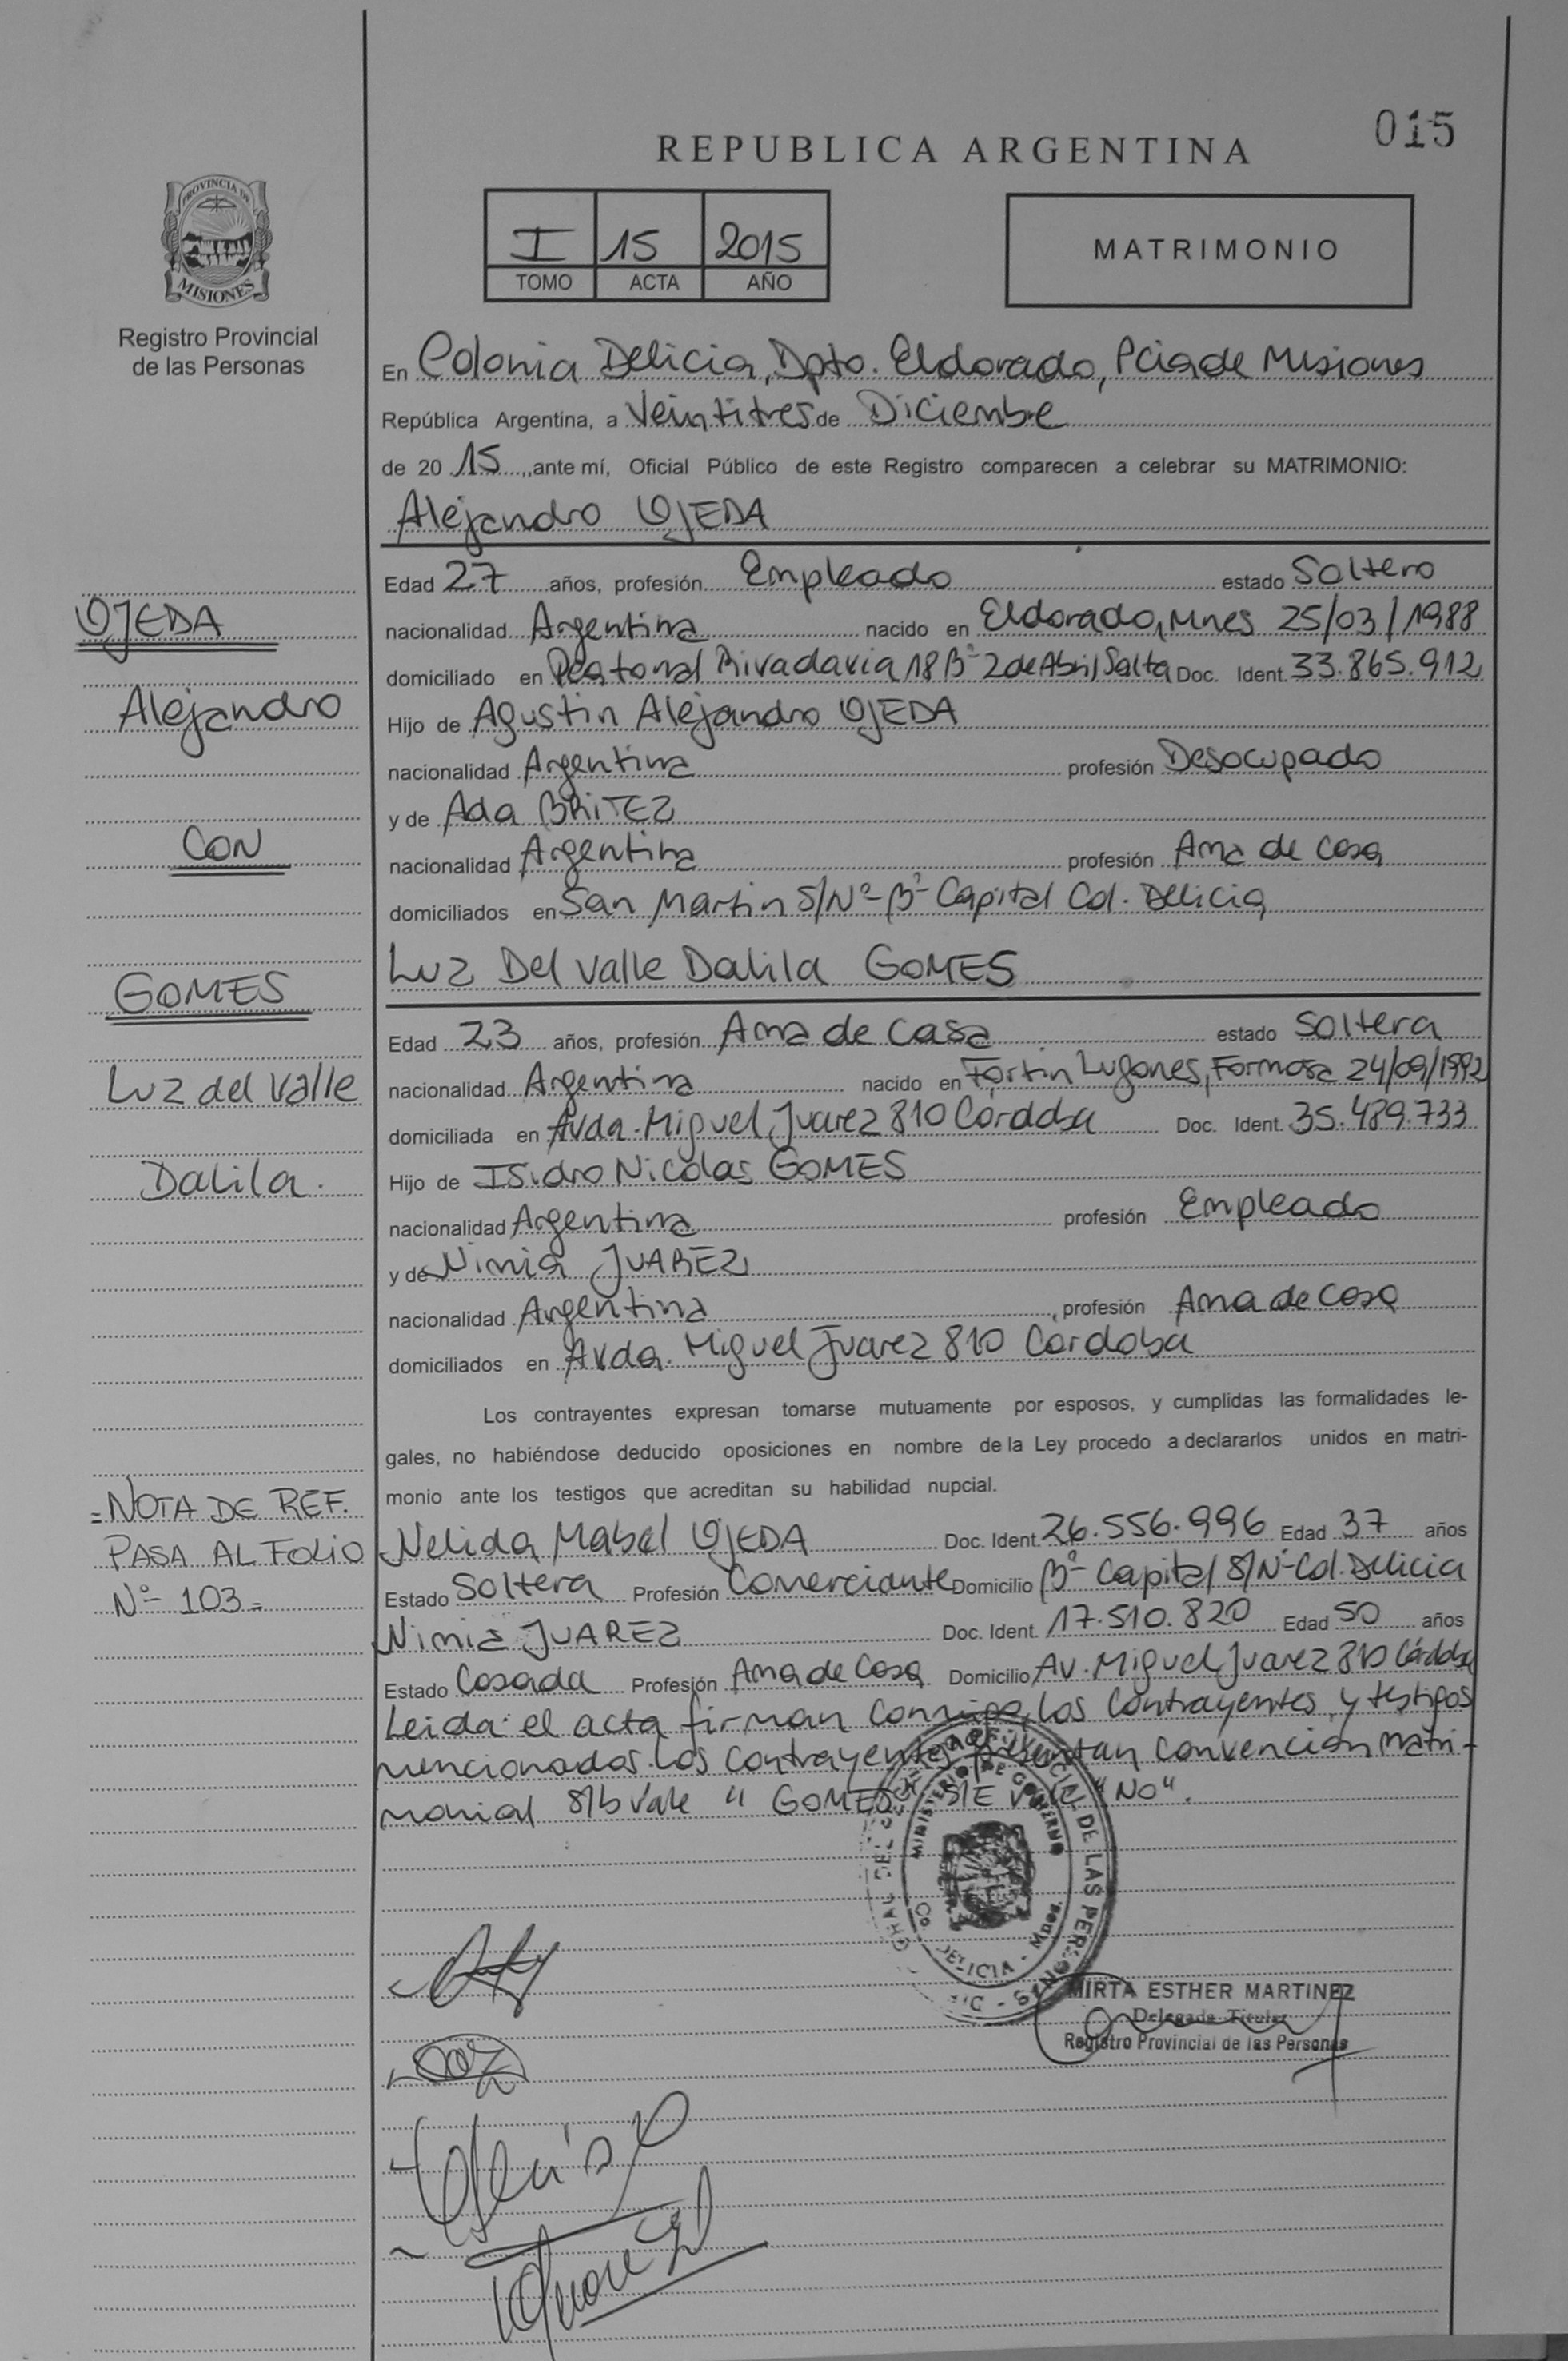 015
REPUBLICA ARGENTINA
PROVINCIA DE
MISIONES
Registro Provincial
de las Personas
I 15 2015
TOMO ACTA AÑO
MATRIMONIO
En Colonia Delicia, Dpto. Eldorado, Pcia de Misiones
República Argentina, a Veintitres de Diciembre
de 20 15, ante mí, Oficial Público de este Registro comparecen a celebrar su MATRIMONIO:
Alejandro OJEDA
Edad 27 años, profesión Empleado estado Soltero
nacionalidad Argentina nacido en Eldorado, Mnes 25/03/1988
domiciliado en Peatonal Rivadavia 18 Bº 2 de Abril Salta Doc. Ident. 33.865.912
Hijo de Agustin Alejandro OJEDA
nacionalidad Argentina profesión Desocupado
y de Ada BRITEZ
nacionalidad Argentina profesión Ama de Casa
domiciliados en San Martin S/Nº Bº Capital Col. Delicia
Luz Del Valle Dalila GOMES
Edad 23 años, profesión Ama de Casa estado Soltera
nacionalidad Argentina nacido en Fortin Lugones, Formosa 24/09/1992
domiciliada en Avda. Miguel Juarez 810 Córdoba Doc. Ident. 35.489.733
Hijo de Isidro Nicolas GOMES
nacionalidad Argentina profesión Empleado
y de Nimia JUAREZ
nacionalidad Argentina, profesión Ama de Casa
domiciliados en Avda. Miguel Juarez 810 Cordoba
Los contrayentes expresan tomarse mutuamente por esposos, y cumplidas las formalidades le-
gales, no habiéndose deducido oposiciones en nombre de la Ley procedo a declararlos unidos en matri-
monio ante los testigos que acreditan su habilidad nupcial.
Nelida Mabel OJEDA Doc. Ident. 26.556.996 Edad 37 años
Estado Soltera Profesión Comerciante Domicilio Bº Capital S/Nº Col. Delicia
Nimia JUAREZ Doc. Ident. 17.510.820 Edad 50 años
Estado Casada Profesión Ama de Casa Domicilio Av. Miguel Juarez 810 Córdoba
Leida el acta firman conmigo, los contrayentes y testigos
mencionados. Los contrayentes presentan convencion matri-
monial S/b vale "GOMES" S/E vale "No".
OJEDA
Alejandro
CON
GOMES
Luz del Valle
Dalila.
=NOTA DE REF.
PASA AL FOLIO
Nº 103=
MINISTERIO DE GOBIERNO
DE LAS PERSONAS
DELICIA - Mnes.
MIRTA ESTHER MARTINEZ
Delegada Titular
Registro Provincial de las Personas